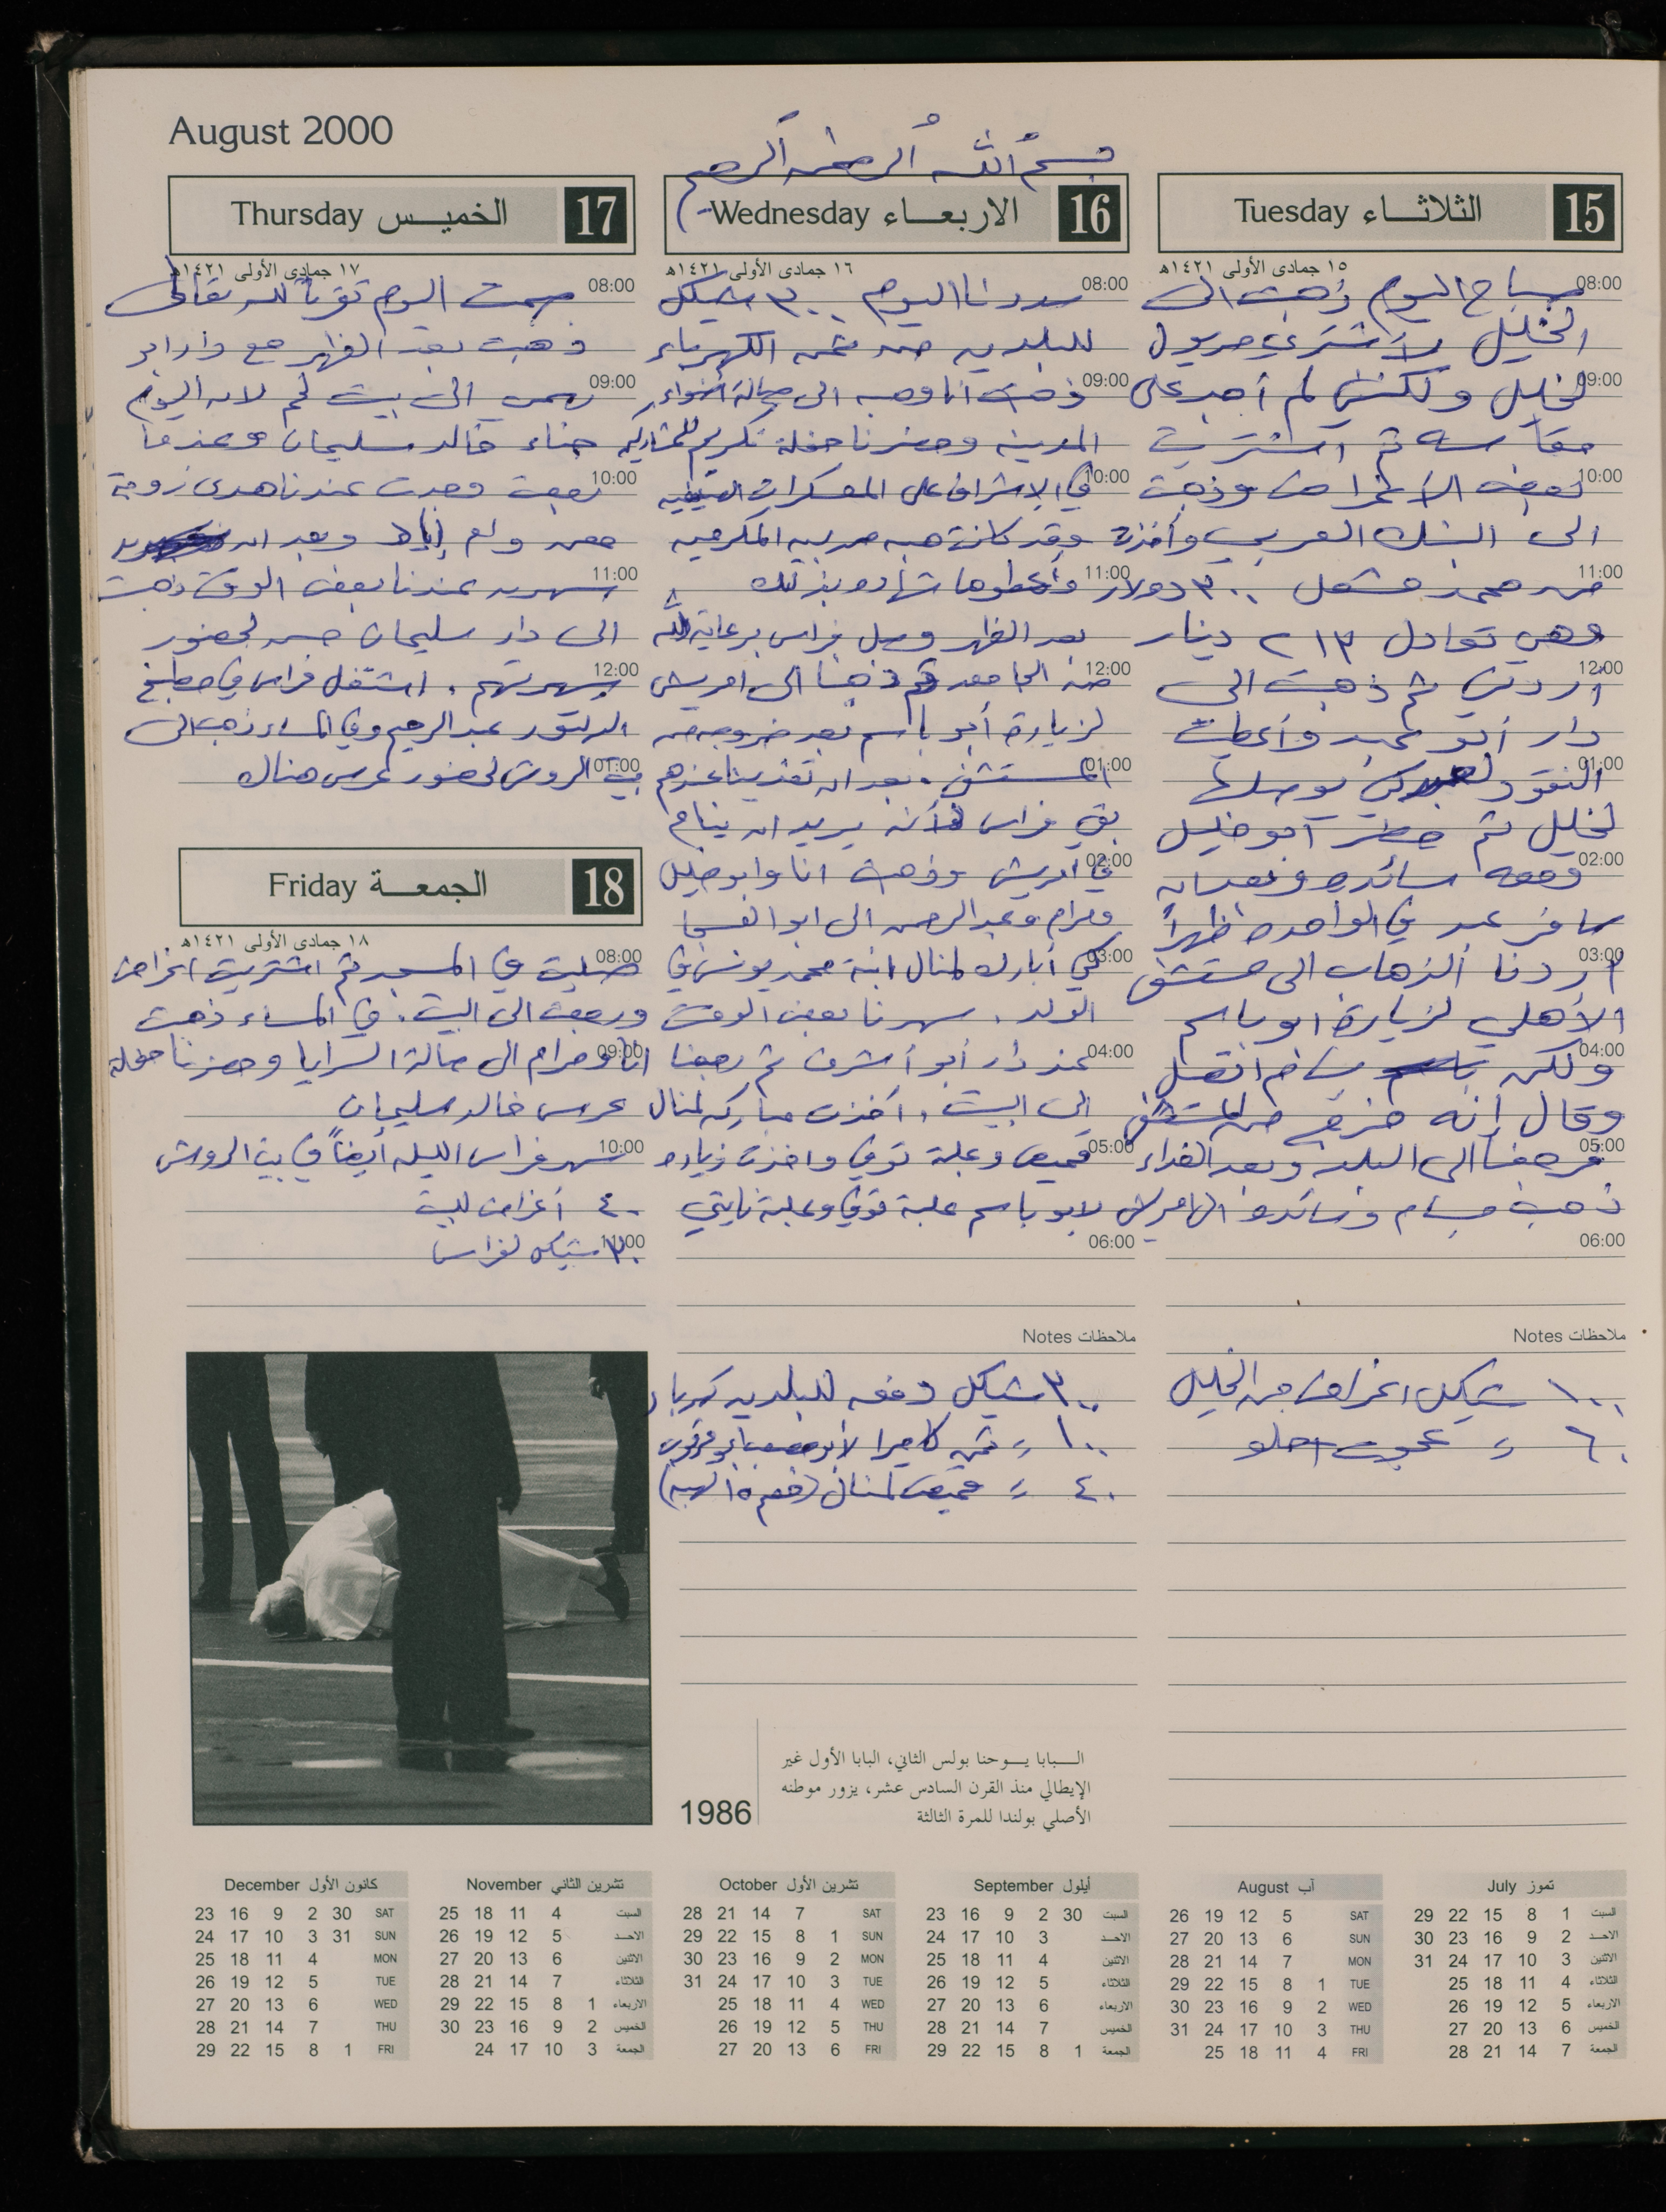 August 2000
بسم الله الرحمن الرحيم
15 الثلاثاء Tuesday
١٥ جمادى الأولى ١٤٢١هـ
08:00 صباح اليوم ذهبت الى
الخليل لأشتري مريول
09:00 لخليل ولكنني لم أجد على
مقاسه ثم اشتريت
10:00 بعض الأغراض وذهبت
الى البنك العربي وأخذت
11:00 من محمد مشعل ٣٠٠ دولار
وهي تعادل ٢١٣ دينار
12:00 أردني ثم ذهبت الى
دار أبو عبد وأعطيت
01:00 النقود لعبد كي يوصلها
لخليل ثم حضر أبو خليل
02:00 ومعه سائده ونعمان
سافر عبد في الواحده ظهراً
03:00 أردنا الذهاب الى مستشفى
الأهلي لزيارة ابو باسم
04:00 ولكن بسام اتصل
وقال إنه خرج من المستشفى
05:00 فرجعنا الى البلد وبعد الغداء
ذهب بسام وسائده الى امريش
06:00
ملاحظات Notes
١٠٠ شيكل اغراض من الخليل
٦٠ = عجوه حلو
16 الاربعاء Wednesday
١٦ جمادى الأولى ١٤٢١هـ
08:00 سددنا اليوم ٣٠٠ شيكل
للبلديه من ثمن الكهرباء
09:00 ذهبت أنا وهبه الى صالة أضواء
المدينه وحضرنا حفلة تكريم للمشاركه
10:00 في الإشراف على المعسكرات الصيفيه
وقد كانت هبه من بين المكرمين
11:00 وأعطوها شهاده بذلك
بعد الظهر وصل فراس برعاية الله
12:00 من الجامعه ثم ذهبنا الى امريش
لزيارة أبو باسم بعد خروجه من
01:00 المستشفى. بعد ان تغدينا عندهم
بقي فراس لأنه يريد ان ينام
02:00 في امريش وذهبت انا وابو خليل
ومرام وعبد الرحمن الى ابو العسجا
03:00 كي أبارك لمنال ابنة محمد يونس في
الولد. سهرنا بعض الوقت
04:00 عند دار أبو أشرف ثم رجعنا
الى البيت. أخذت مباركه لمنال
05:00 قميص وعلبة توفي واخذت زياره
لابو باسم علبة توفي وعلبة نايتي
06:00
ملاحظات Notes
٣٠٠ شيكل دفعه للبلديه كهرباء
١٠٠ = ثمن كاميرا
٤٠ = قميص لمنال
17 الخميس Thursday
١٧ جمادى الأولى ١٤٢١هـ
08:00 صمت اليوم تقرباً لله تعالى
ذهبت بعد الظهر مع دار ابو
09:00 الى بيت لحم لان اليوم
حناء خالد سليمان وعندما
10:00 رجعت وجدت عندنا هدى زوجة
وبعد ان
11:00 سهرت عندنا بعض الوقت ذهبت
الى دار سليمان حسن لحضور
12:00 سهرتهم. اشتغل فراس في مطبخ
الدكتور عبد الرحيم وفي المساء ذهب الى
01:00 بيت الروش لحضور عرس هناك
18 الجمعة Friday
١٨ جمادى الأولى ١٤٢١هـ
08:00 صليت في المسجد ثم اشتريت اغراض
ورجعت الى البيت. في المساء ذهبت
09:00 انا ومرام الى صالة السرايا وحضرنا حفلة
عرس خالد سليمان
10:00 سهر فراس الليله أيضاً في بيت الروش
٤٠ أغراض للبيت
11:00 ٣٠ شيكل لفراس
1986
البابا يوحنا بولس الثاني، البابا الأول غير
الإيطالي منذ القرن السادس عشر، يزور موطنه
الأصلي بولندا للمرة الثالثة
تموز July
السبت 1 8 15 22 29
الاحد 2 9 16 23 30
الاثنين 3 10 17 24 31
الثلاثاء 4 11 18 25
الاربعاء 5 12 19 26
الخميس 6 13 20 27
الجمعة 7 14 21 28
آب August
SAT 5 12 19 26
SUN 6 13 20 27
MON 7 14 21 28
TUE 1 8 15 22 29
WED 2 9 16 23 30
THU 3 10 17 24 31
FRI 4 11 18 25
أيلول September
السبت 30 2 9 16 23
الاحد 3 10 17 24
الاثنين 4 11 18 25
الثلاثاء 5 12 19 26
الاربعاء 6 13 20 27
الخميس 7 14 21 28
الجمعة 1 8 15 22 29
تشرين الأول October
SAT 7 14 21 28
SUN 1 8 15 22 29
MON 2 9 16 23 30
TUE 3 10 17 24 31
WED 4 11 18 25
THU 5 12 19 26
FRI 6 13 20 27
تشرين الثاني November
السبت 4 11 18 25
الاحد 5 12 19 26
الاثنين 6 13 20 27
الثلاثاء 7 14 21 28
الاربعاء 1 8 15 22 29
الخميس 2 9 16 23 30
الجمعة 3 10 17 24
كانون الأول December
SAT 30 2 9 16 23
SUN 31 3 10 17 24
MON 4 11 18 25
TUE 5 12 19 26
WED 6 13 20 27
THU 7 14 21 28
FRI 1 8 15 22 29